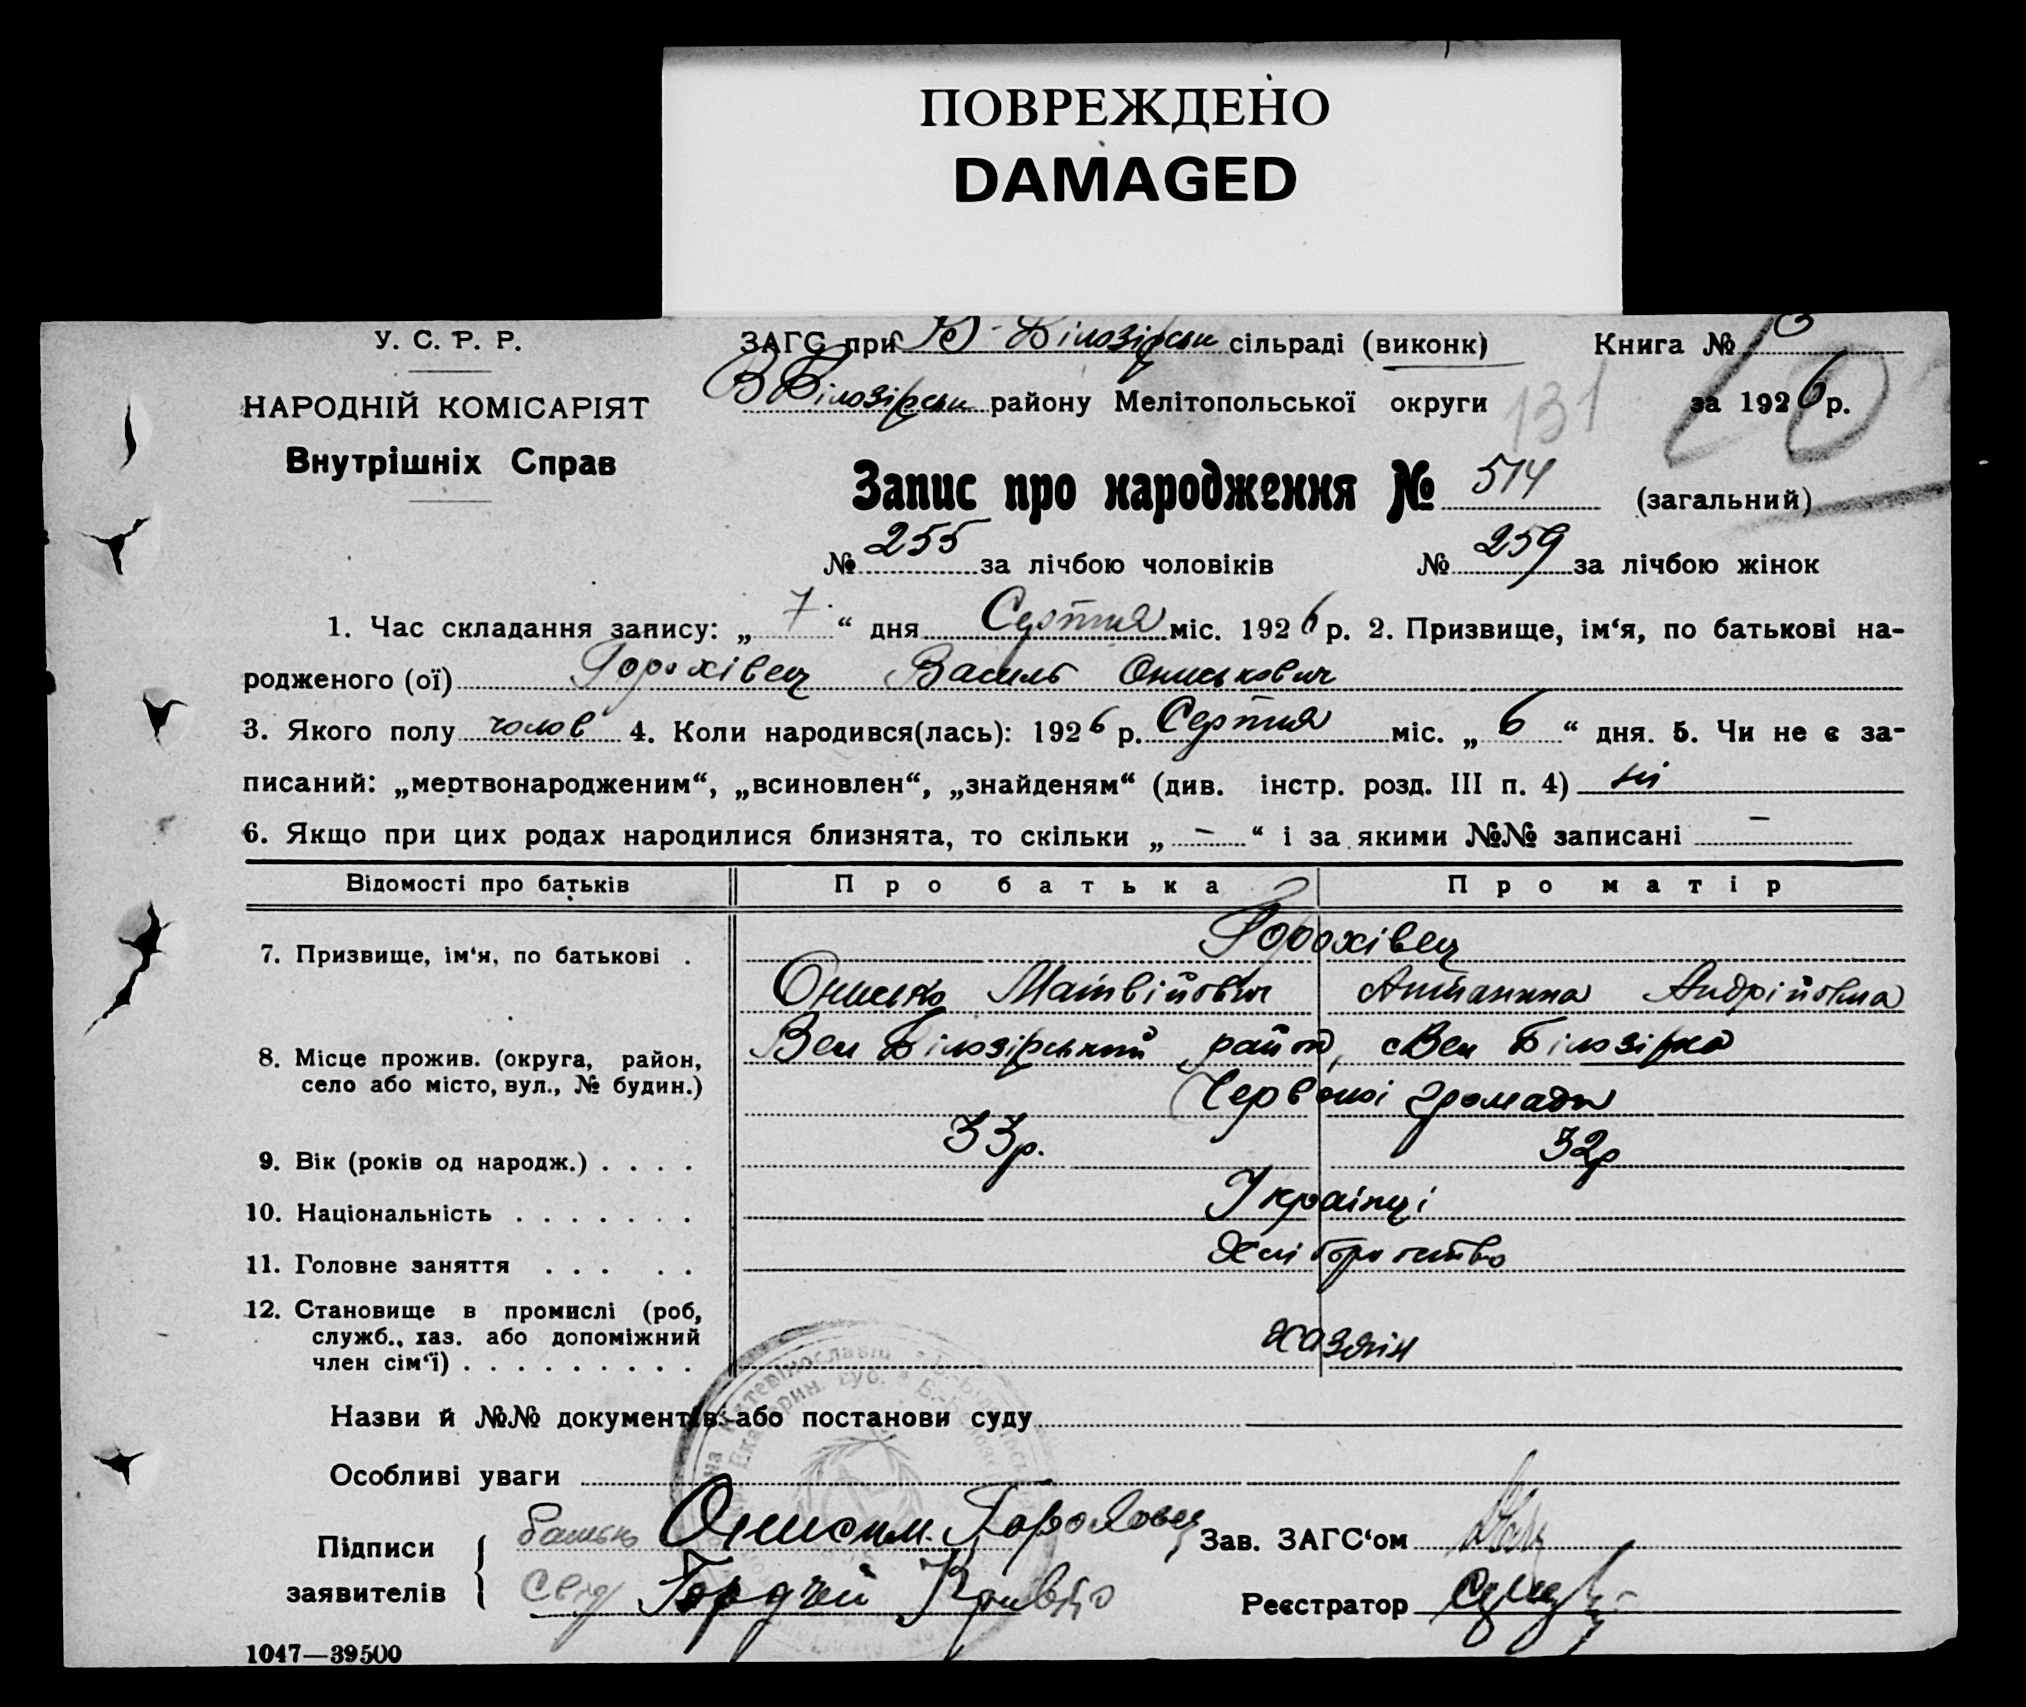 ПОВРЕЖДЕНО
DAMAGED
У. С. Р. Р.
ЗАГС при В-Білозірськ сільраді (виконк) Книга №
НАРОДНІЙ КОМІСАРІЯТ
В Білозірськ району Мелітопольської округи 131 за 1926 р.
Внутрішніх Справ
Запис про народження № 514 (загальний)
№ 255 за лічбою чоловіків № 259 за лічбою жінок
1. Час складання запису: „ 7 “ дня Серпня міс. 1926 р. 2. Призвище, ім‘я, по батькові на-
родженого (ої) Горохівец ВасильОниськович
3. Якого полу чолов 4. Коли народився(лась): 1926 р. Серпня міс. „ 6 “ дня. 5. Чи не є за-
писаний: „мертвонародженим“, „всиновлен“, „знайденям“ (див. інстр. розд. III п. 4) ні
6. Якщо при цих родах народилися близнята, то скільки „ – “ і за якими №№ записані –
Відомості про батьків Про батька Про матір
7. Призвище, ім‘я, по батькові . Горохівец
Онисько Матвійович Антанина Андрійовна
8. Місце прожив. (округа, район, Вел Білозірський район, Вел Білозірка
село або місто, вул., № будин.) Червоної громади
9. Вік (років од народж.) . . . . 33р. 32р
10. Національність . . . . . . . Українці
11. Головне заняття . . . . . Хліборобство
12. Становище в промислі (роб,
служб., хаз. або допоміжний хазяін
член сім‘ї) . . . . . . . . .
Назви й №№ документів або постанови суду
Особливі уваги
Підписи батько Онисим Гороховец Зав. ЗАГС‘ом
заявителів Свід Гордей Реєстратор
1047—39500